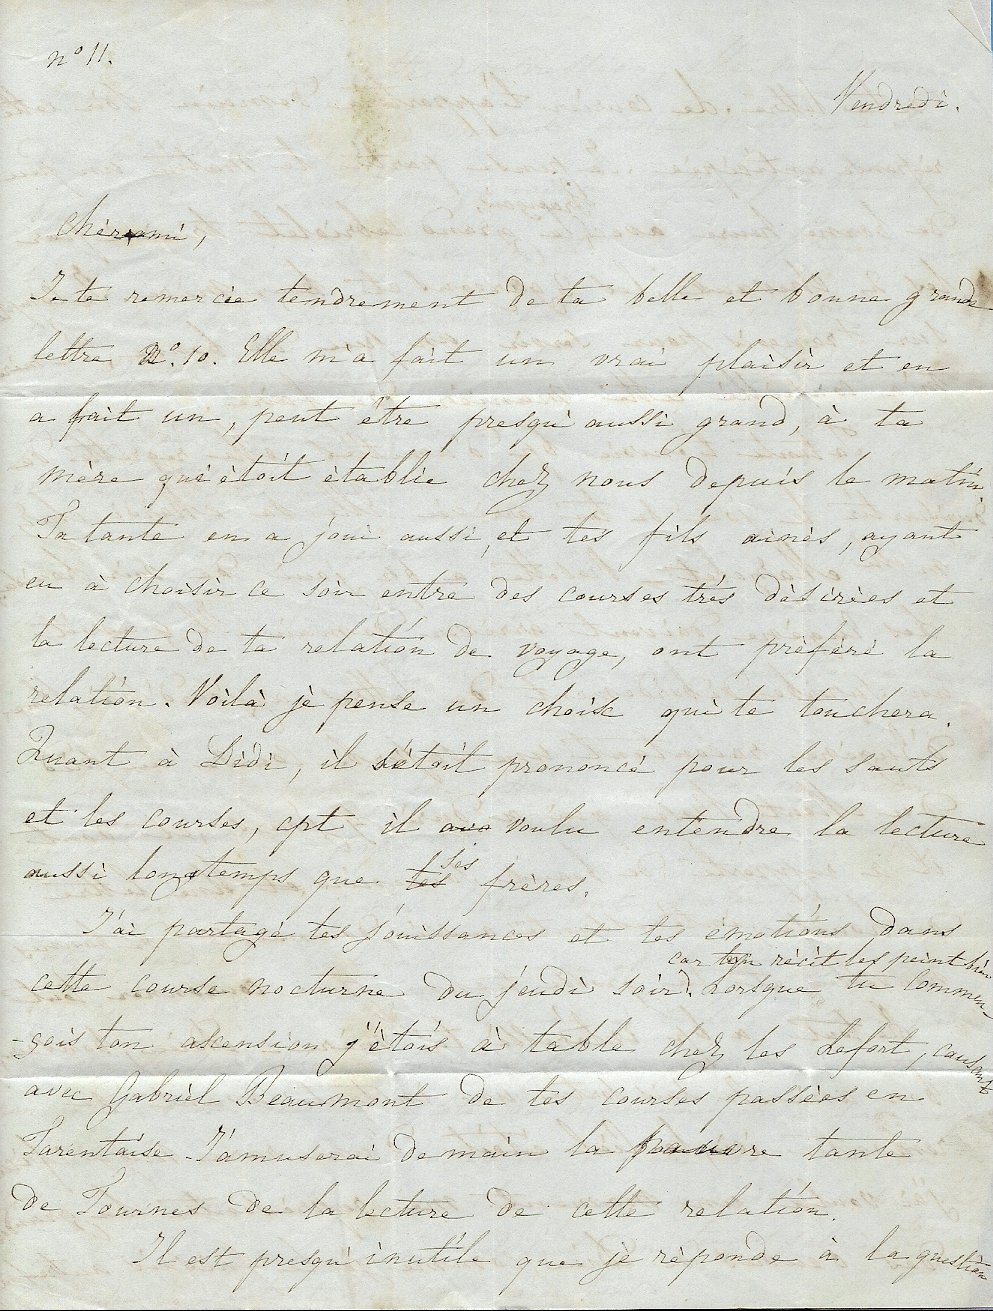 n° 11.
Vendredi.
Cher ami,
Je te remercie tendrement de ta belle et bonne grande
lettre N°. 10. Elle m'a fait un vrai plaisir et en
a fait un, peut être presqu'aussi grand, à ta
mère qui étoit établie chez nous depuis le matin
Ta tante en a joui aussi, et tes fils ainés, ayant
eu à choisir ce soir entre des courses très désirées et
la lecture de ta relation de voyage, ont préféré la
relation. Voilà je pense un choix qui te touchera.
Quant à Didi, il s'étoit prononcé pour les sauts
et les courses, cpt il a voulu entendre la lecture
aussi longtemps que ses frères.
J'ai partagé tes jouissances et tes émotions dans
car ton récit les peint bien
cette course nocturne du jeudi soir. Lorsque tu commen-
-çois ton ascension j'étois à table chez les Lefort, causant
avec Gabriel Beaumont de tes courses passées en
Tarentaise. J'amuserai demain la pauvre tante
de Tournes de la lecture de cette relation.
Il est presqu'inutile que je réponde à la question